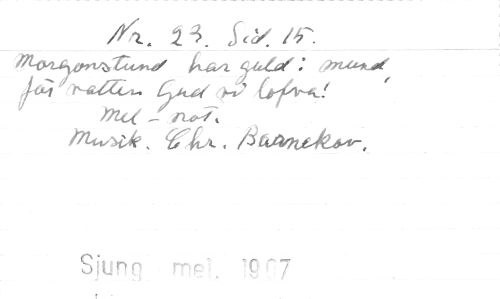 Nr. 23. Sid. 15.
Morgonstund har guld i mund,
för natten Gud vi lofva!
Mel-not.
Musik. Chr. Barnekov.
Sjung mel. 1907